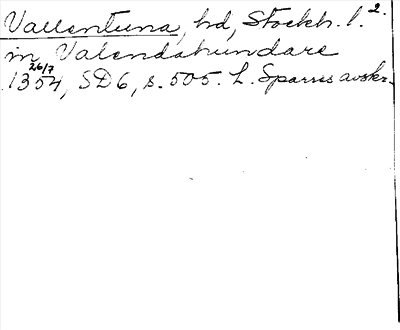 Vallentuna, hd, Stockh. l. 2.
in Valendahundare
26/7 1354, SD 6, s. 505. L. Sparres avskr.